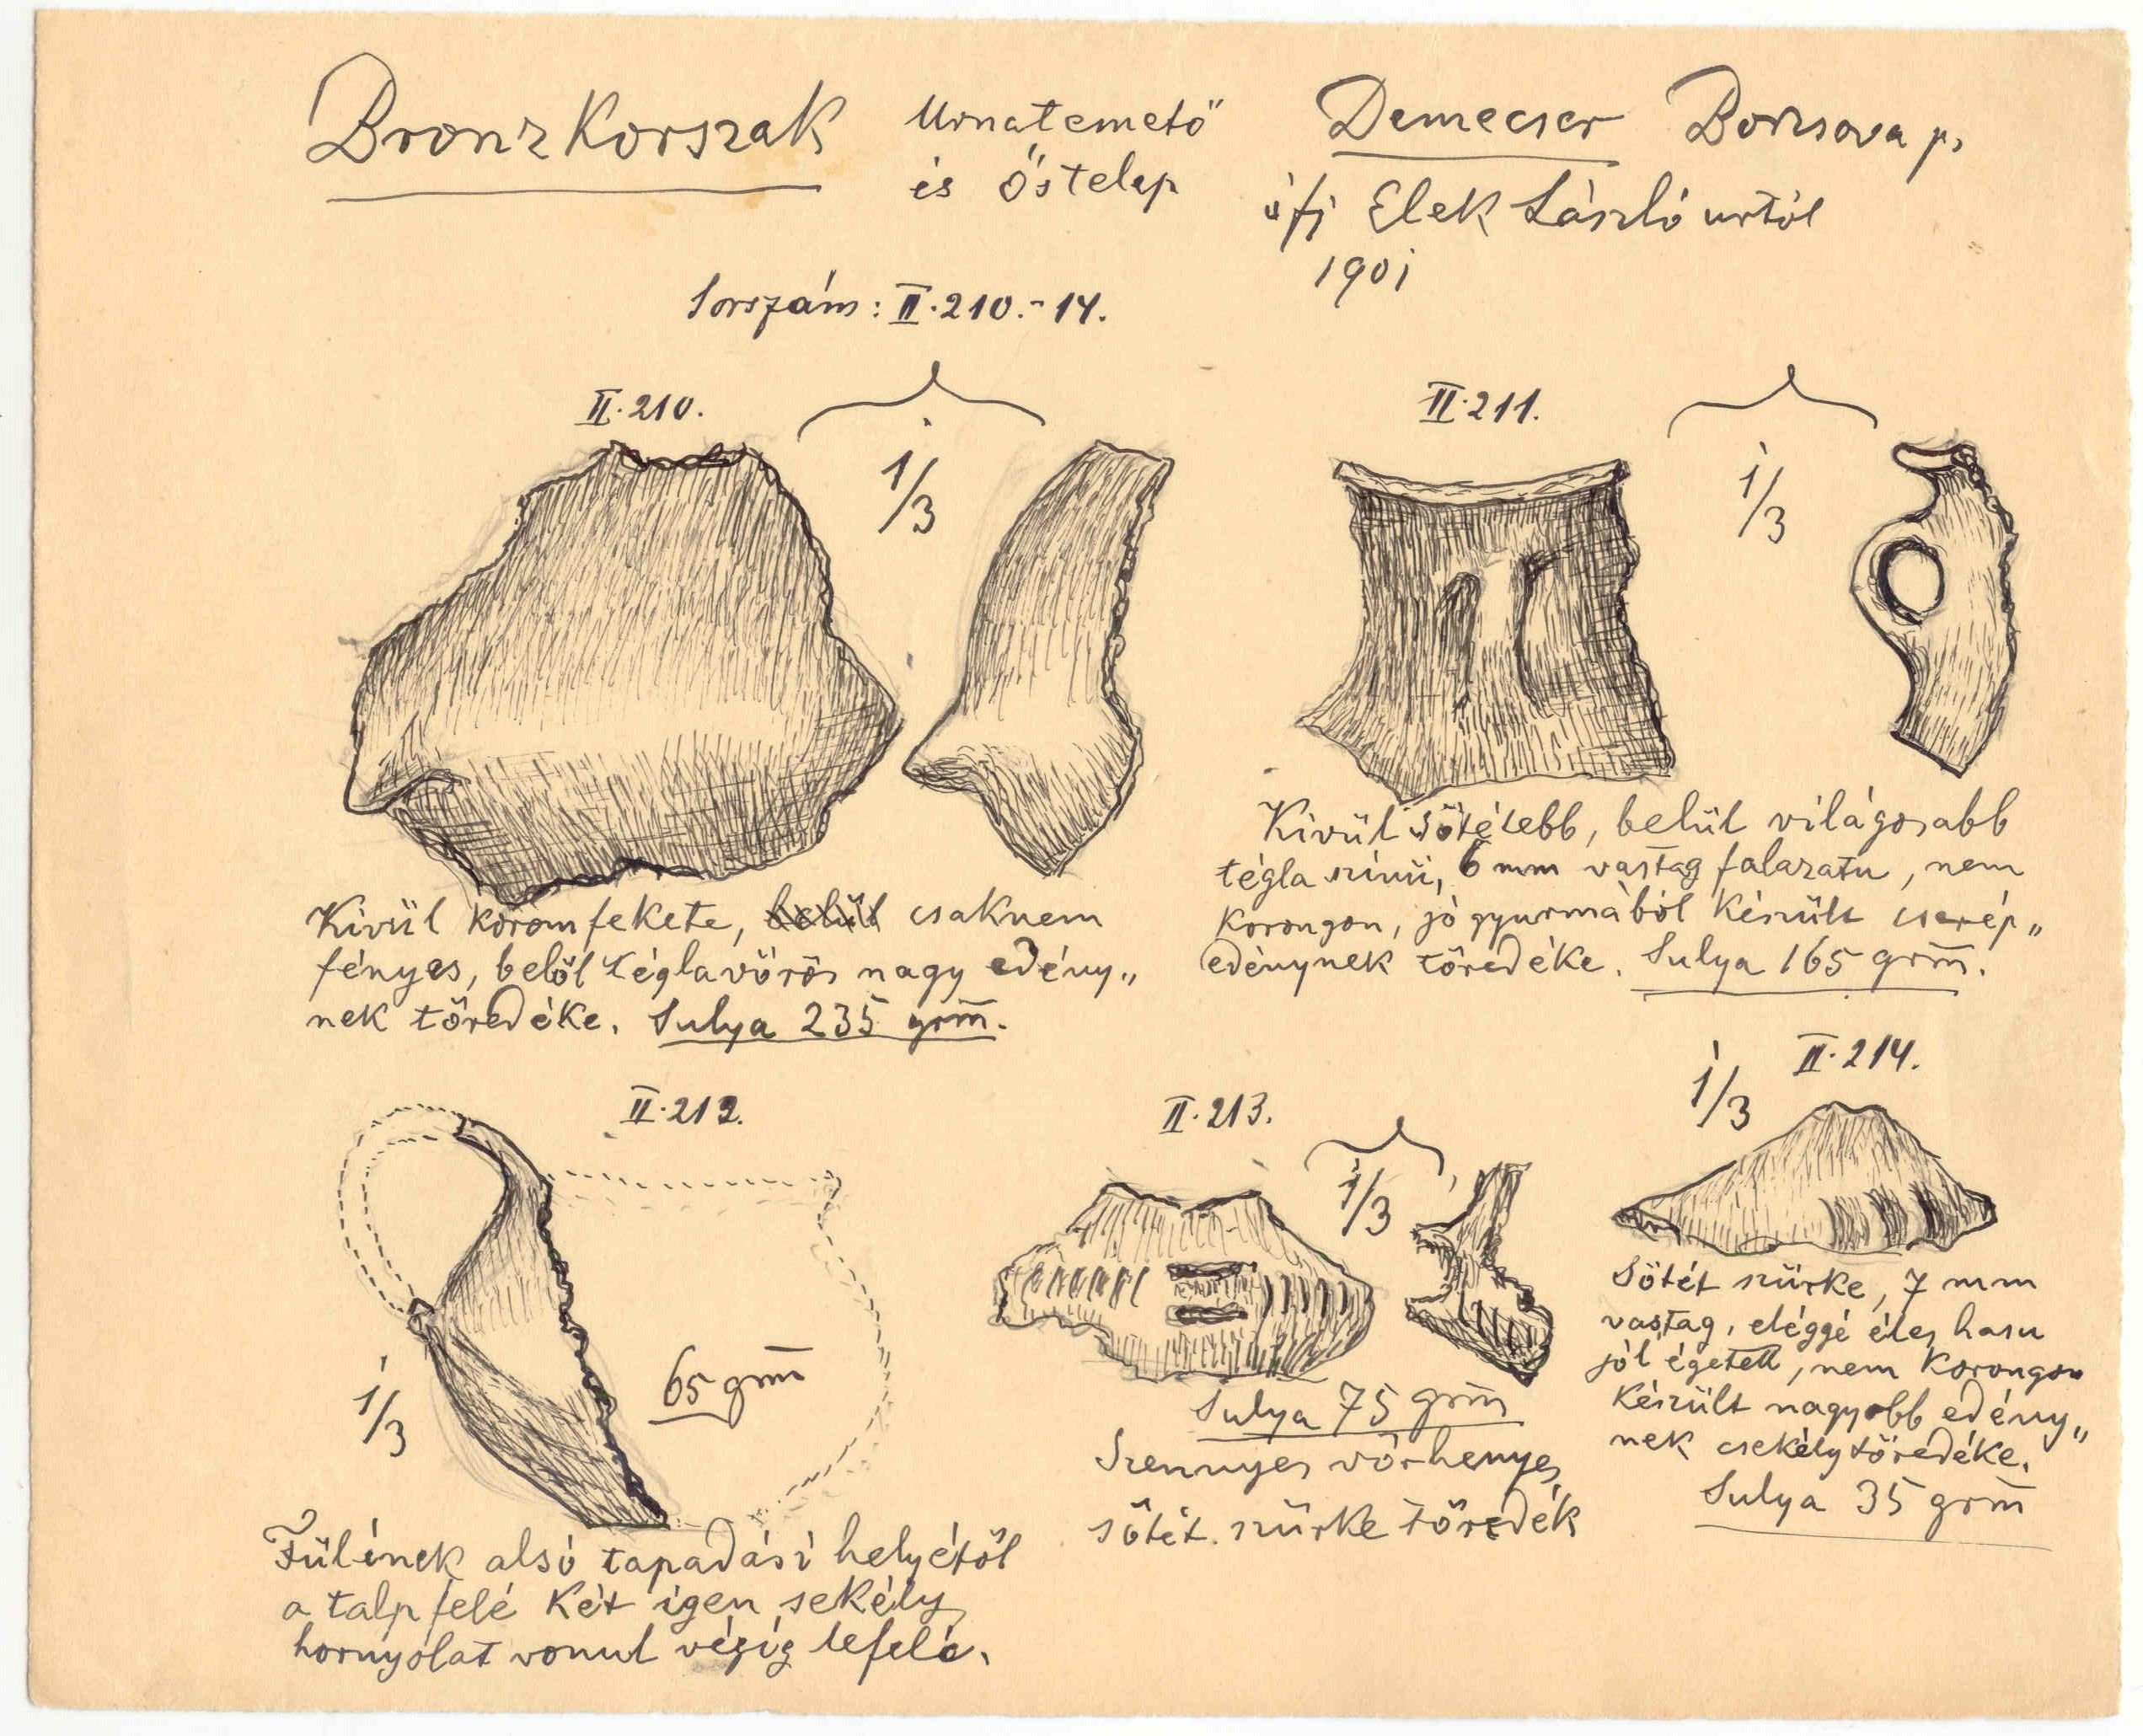 Bronzkorszak
Urnatemető
és őstelep
Demecser Borzsova p.
ifj Elek László urtól
1901
Sorszám: II.210.-14.
II.210.
1/3
II.211.
1/3
Kívül koromfekete, belül csaknem
fényes, belől téglavörös nagy edény„
nek töredéke. Sulya 235 grm.
Kivül sötétebb, belül világosabb
tégla szinü, 6 mm vastag falazatu, nem
korongon, jó gyurmából készült cserép„
edénynek töredéke. Sulya 165 grm.
II.212.
1/3
65 grm
Fülének alsó tapadási helyétől
a talp felé két igen sekély
hornyolat vonul végig lefelé.
II.213.
1/3
Sulya 75 grm
Szennyes vörhenyes,
sötét szürke töredék
1/3
II.214.
Sötét szürke, 7 mm
vastag, eléggé éles hasu
jól égetett, nem korongon
készült nagyobb edény„
nek csekély töredéke.
Sulya 35 grm